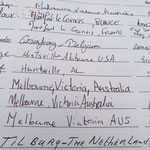 Melbourne Victoria Australia
Montfort le Gesnois FRANCE
Montfort le Gesnois France
Belgium
Huntsville Alabama USA
Huntsville, AL
Melbourne, Victoria, Australia
Melbourne Victoria Australia
Melbourne Victoria AUS
TILBURG - THE NETHERLANDS